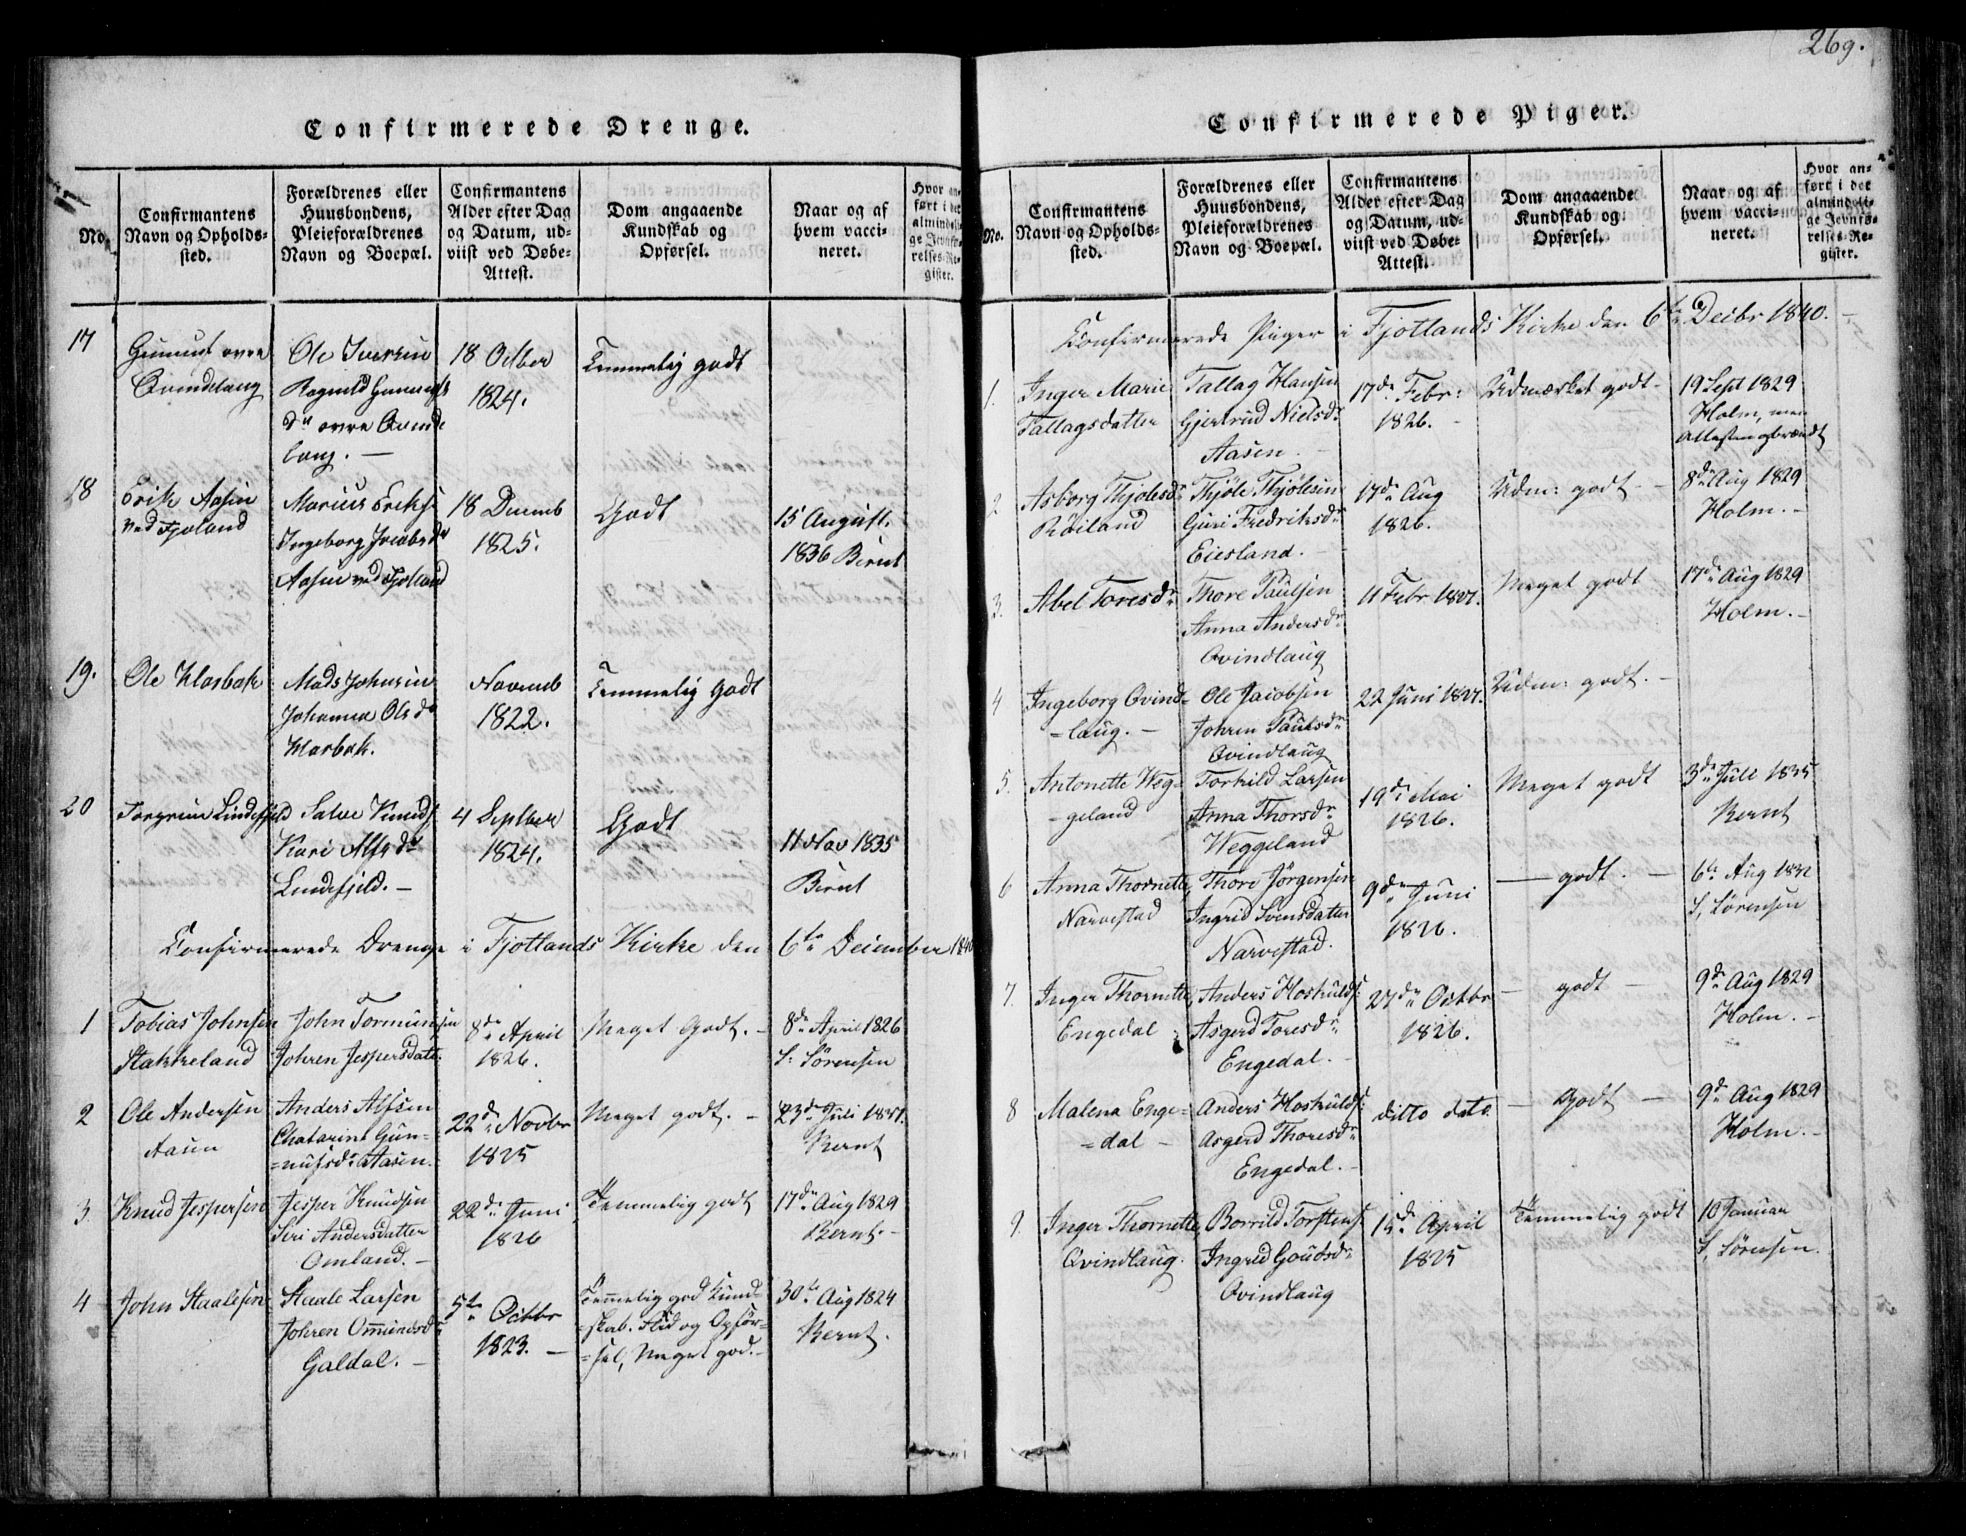 269.
Confirmerede Drenge.
No.
Confirmantens
Navn og Opholds-
sted.
Forældrenes eller
Huusbondens,
Pleieforældrenes
Navn og Boepæl.
Confirmantens
Alder efter Dag
og Datum, ud-
viist ved Døbe-
Attest.
Dom angaaende
Kundskab og
Opførsel.
Naar og af
hvem vacci-
neret.
Hvor an-
ført i det
almindeli-
ge Jevnfø-
relses-Re-
gister.
17
Gunnuf øvre
Qvindelaug
Ole Iversen
Ragnild Gunnufs
dr øvre Qvinde
laug. —
18 Octber
1824.
Temmelig godt
18
Erik Aasen
ved Fjotland
Marius Eriks.
Ingeborg Jacobsdr
Aasen ved Fjotland
18 Decemb
1825.
Godt
15 August.
1836 Bernt
19.
Ole Klarbak
Mads Johnsen
Johanna Olsdr
Klarbak.
Novemb
1822.
Temmelig Godt
20
Torgrim Lindefjeld
Salve Knuds.
Kari Alfsdr
Lindefjeld. —
4 Septber
1824.
Godt
11 Nov 1835
Bernt
Confirmerede Drenge i Fjotlands Kirke den 6te December 1840
1
Tobias Johnsen
Stakkeland
John Tormunsen
Johren Jespersdatr.
8de April
1826.
Meget Godt. —
8de April 1826
S: Sørensen
2
Ole Andersen
Aasen
Anders Alfsen
Chatarine Gun-
=nufsdr Aasen.
22de Novbr
1825
Meget godt. —
23de Juli 1831.
Bernt
3
Knud Jespersen
Jesper Knudsen
Siri Andersdatter
Omland. —
22de Juni
1826
Temmelig godt
17de Aug 1829
Bernt. —
4
John Staalesen
Staale Larsen
Johren Omundsdr
Galdal. —
5te Octbr
1823. —
Temmelig god Kund-
=skab. Flid og Opfør-
=sel, Meget god. —
30te Aug 1824
Bernt.
Confirmerede Piger.
No.
Confirmantens
Navn og Opholds-
sted.
Forældrenes eller
Huusbondens,
Pleieforældrenes
Navn og Boepæl.
Confirmantens
Alder efter Dag
og Datum, ud-
viist ved Døbe-
Attest.
Dom angaaende
Kundskab og
Opførsel.
Naar og af
hvem vacci-
neret.
Hvor an-
ført i det
almindeli-
ge Jevnfø-
relses-Re-
gister.
Confirmerede Piger i Fjotlands Kirke den 6te Decbr 1840. —
1.
Inger Marie
Tallagsdatter
Tallag Hansen
Gjertrud Nielsdr
Aasen. —
17de Febr:
1826. —
Udmærket godt —
19 Sept 1829
Holm, men
Attesten opbrændt
2
Asborg Thjølesdr
Røiland
Thjøle Thjølesen
Guri Fredriksdr
Eiesland. —
17de Aug
1826.
Udm: godt —
8de Aug 1829
Holm. —
3.
Abel Toresdr
Thore Paulsen
Anna Andersdr
Qvindlaug
11 Febr 1827.
Meget godt
17de Aug 1829
Holm. —
4
Ingeborg Qvind-
=laug. —
Ole Jacobsen
Johren Paulsdr
Qvindlaug
22 Juni 1827.
Udm: godt. —
5.
Antonette Weg-
-geland
Torkild Larsen
Anna Thorsdr
Weggeland
19de Mai
1826.
Meget godt
3de Juli 1835
Bernt
6
Anna Thornette
Narvestad
Thore Jørgensen
Ingrid Svensdatter
Narvestad.
9de Juni
1826.
— godt. —
6te Aug 1832
S. Sørensen
7.
Inger Thornette
Engedal
Anders Hoskulds:
Asgerd Toresdr
Engedal. —
27de Octbr
1826.
— godt —
9de Aug 1829
Holm. —
8
Malena Enge-
=dal —
Anders Hoskulds:
Asgerd Thoresdr
Engedal. —
ditto dato.
— Godt —
9de Aug 1829
Holm. —
9.
Inger Thornette
Qvindlaug.
Borrild Torstens:
Ingrid Goudsdr
Qvindlaug
15de April
1825
Temmelig godt
10 Januar
S. Sørensen.